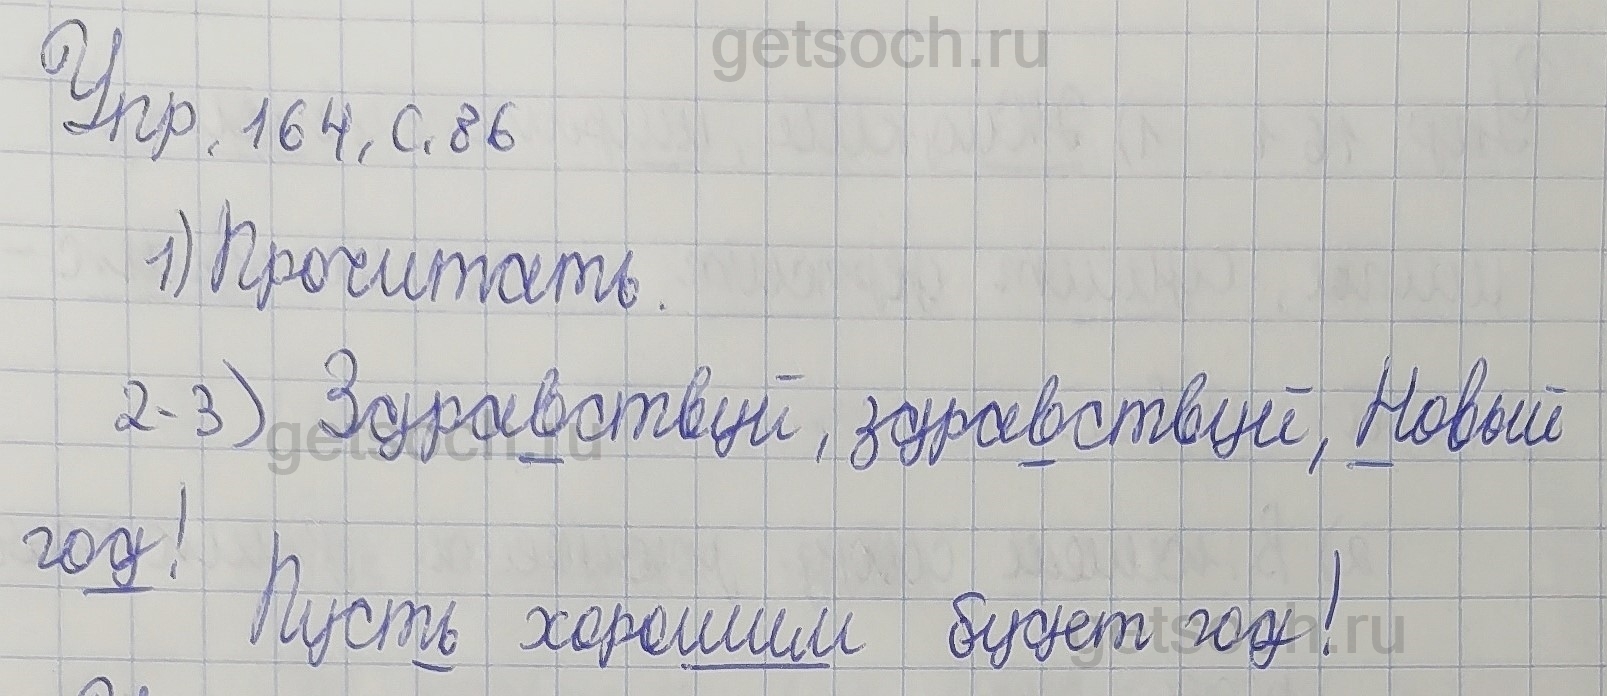 getsoch.ru
Упр. 164, с. 86
1) Прочитать.
2-3) Здравствуй, здравствуй, Новый
getsoch.ru
год!
Пусть хорошим будет год!
getsoch.ru